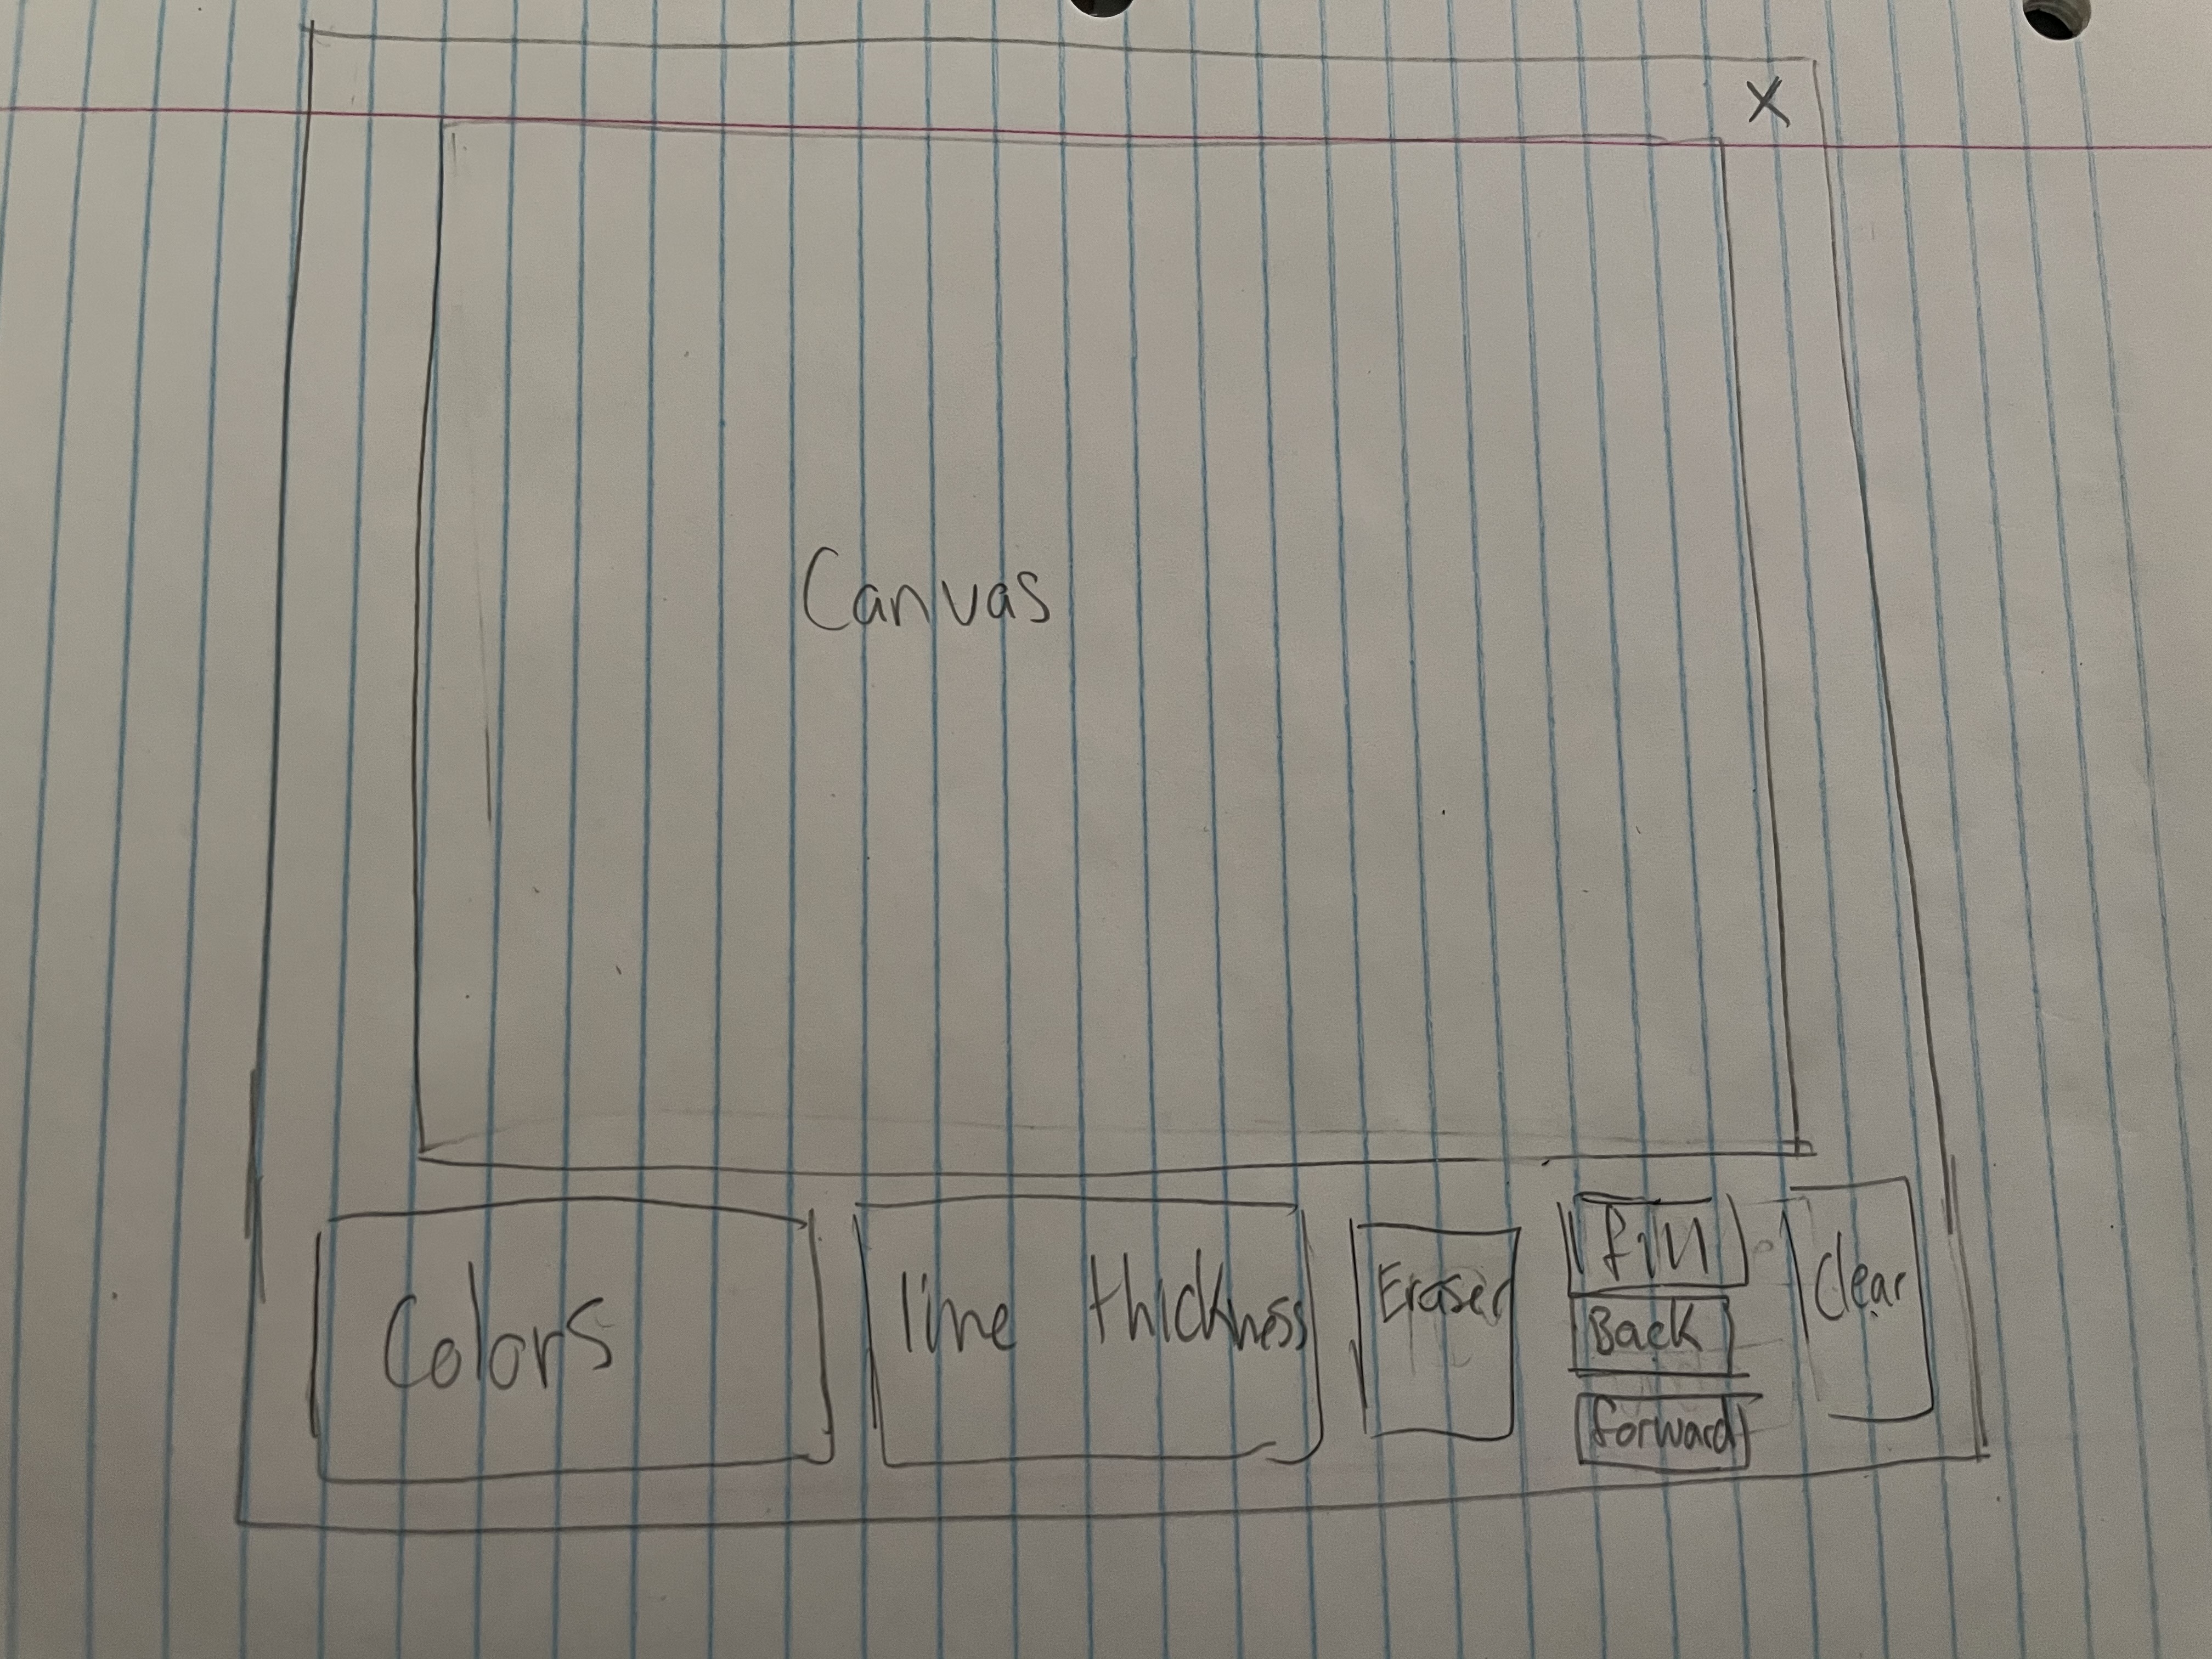 X
Canvas
Colors
line thickness
Eraser
Fill
Back
forward
Clear